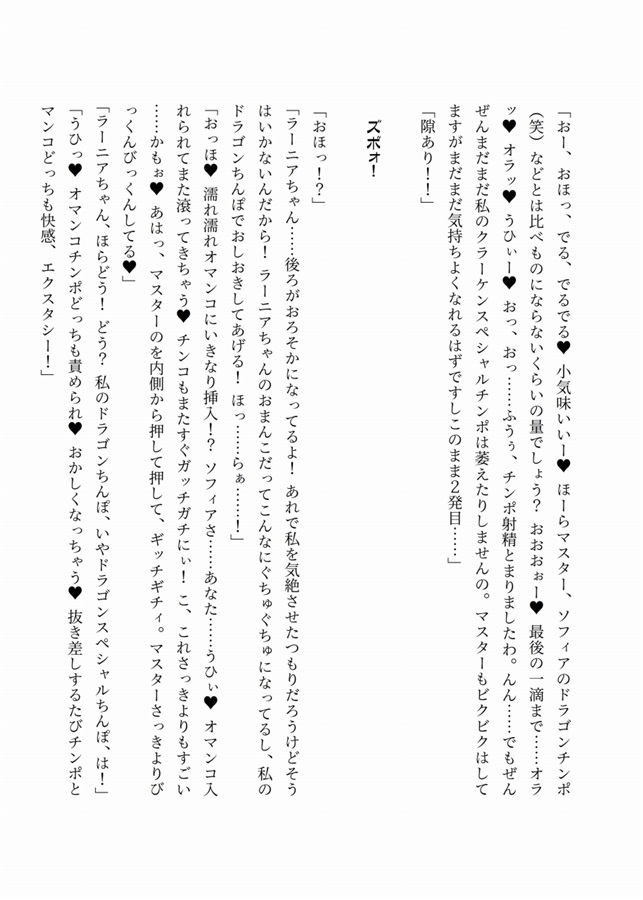 「おー、おほっ、でる、でるでる♥ 小気味いいー♥ ほーらマスター、ソフィアのドラゴンチンポ
（笑）などとは比べものにならないくらいの量でしょう？ おおおぉー♥ 最後の一滴まで……オラ
ッ♥ オラッ♥ うひぃー♥ おっ、おっ……ふうぅ、チンポ射精とまりましたわ。んん……でもぜん
ぜんまだまだ私のクラーケンスペシャルチンポは萎えたりしませんの。マスターもビクビクはして
ますがまだまだ気持ちよくなれるはずですしこのまま２発目……」
「隙あり！！」
ズボォ！
「おほっ！？」
「ラーニアちゃん……後ろがおろそかになってるよ！ あれで私を気絶させたつもりだろうけどそう
はいかないんだから！ ラーニアちゃんのおまんこだってこんなにぐちゅぐちゅになってるし、私の
ドラゴンちんぽでおしおきしてあげる！ ほっ……らぁ……！」
「おっほ♥ 濡れ濡れオマンコにいきなり挿入！？ ソフィアさ……あなた……うひぃ♥ オマンコ入
れられてまた滾ってきちゃう♥ チンコもまたすぐガッチガチにぃ！ こ、これさっきよりもすごい
……かもぉ♥ あはっ、マスターのを内側から押して押して、ギッチギチィ。マスターさっきよりび
っくんびっくんしてる♥」
「ラーニアちゃん、ほらどう！ どう？ 私のドラゴンちんぽ、いやドラゴンスペシャルちんぽ、は！」
「うひっ♥ オマンコチンポどっちも責められ♥ おかしくなっちゃう♥ 抜き差しするたびチンポと
マンコどっちも快感、エクスタシー！」